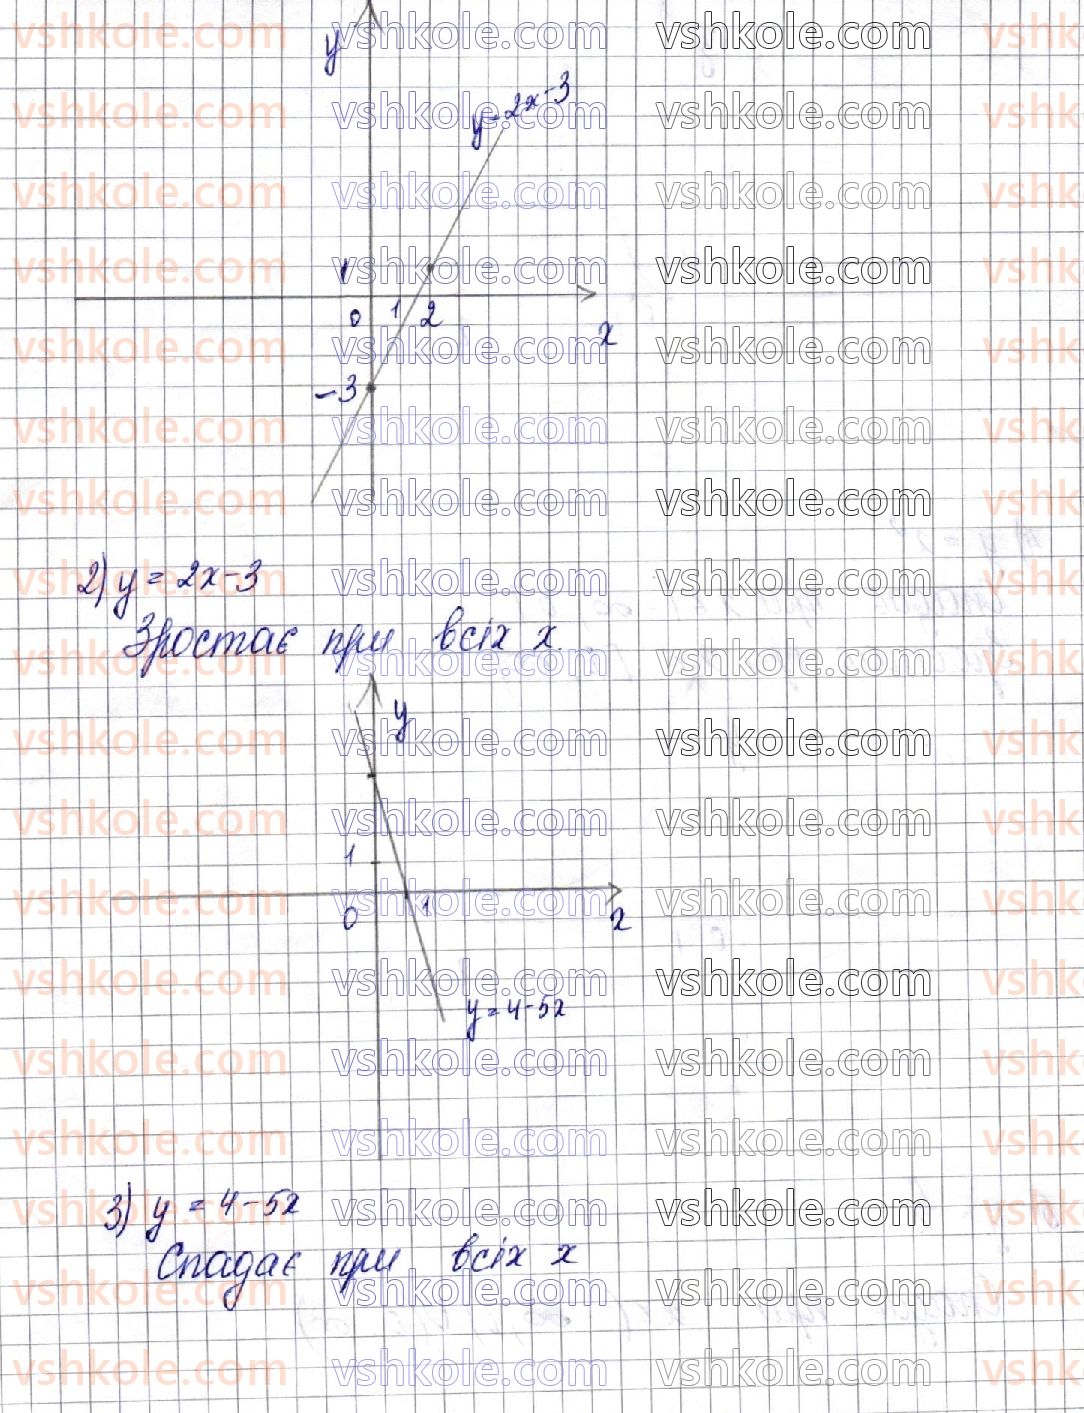 y
y=2x-3
1
0 1 2
x
-3
2) y = 2x-3
Зростає при всіх x.
y
1
0 1
x
y=4-5x
3) y = 4-5x
Спадає при всіх x
vshkole.com